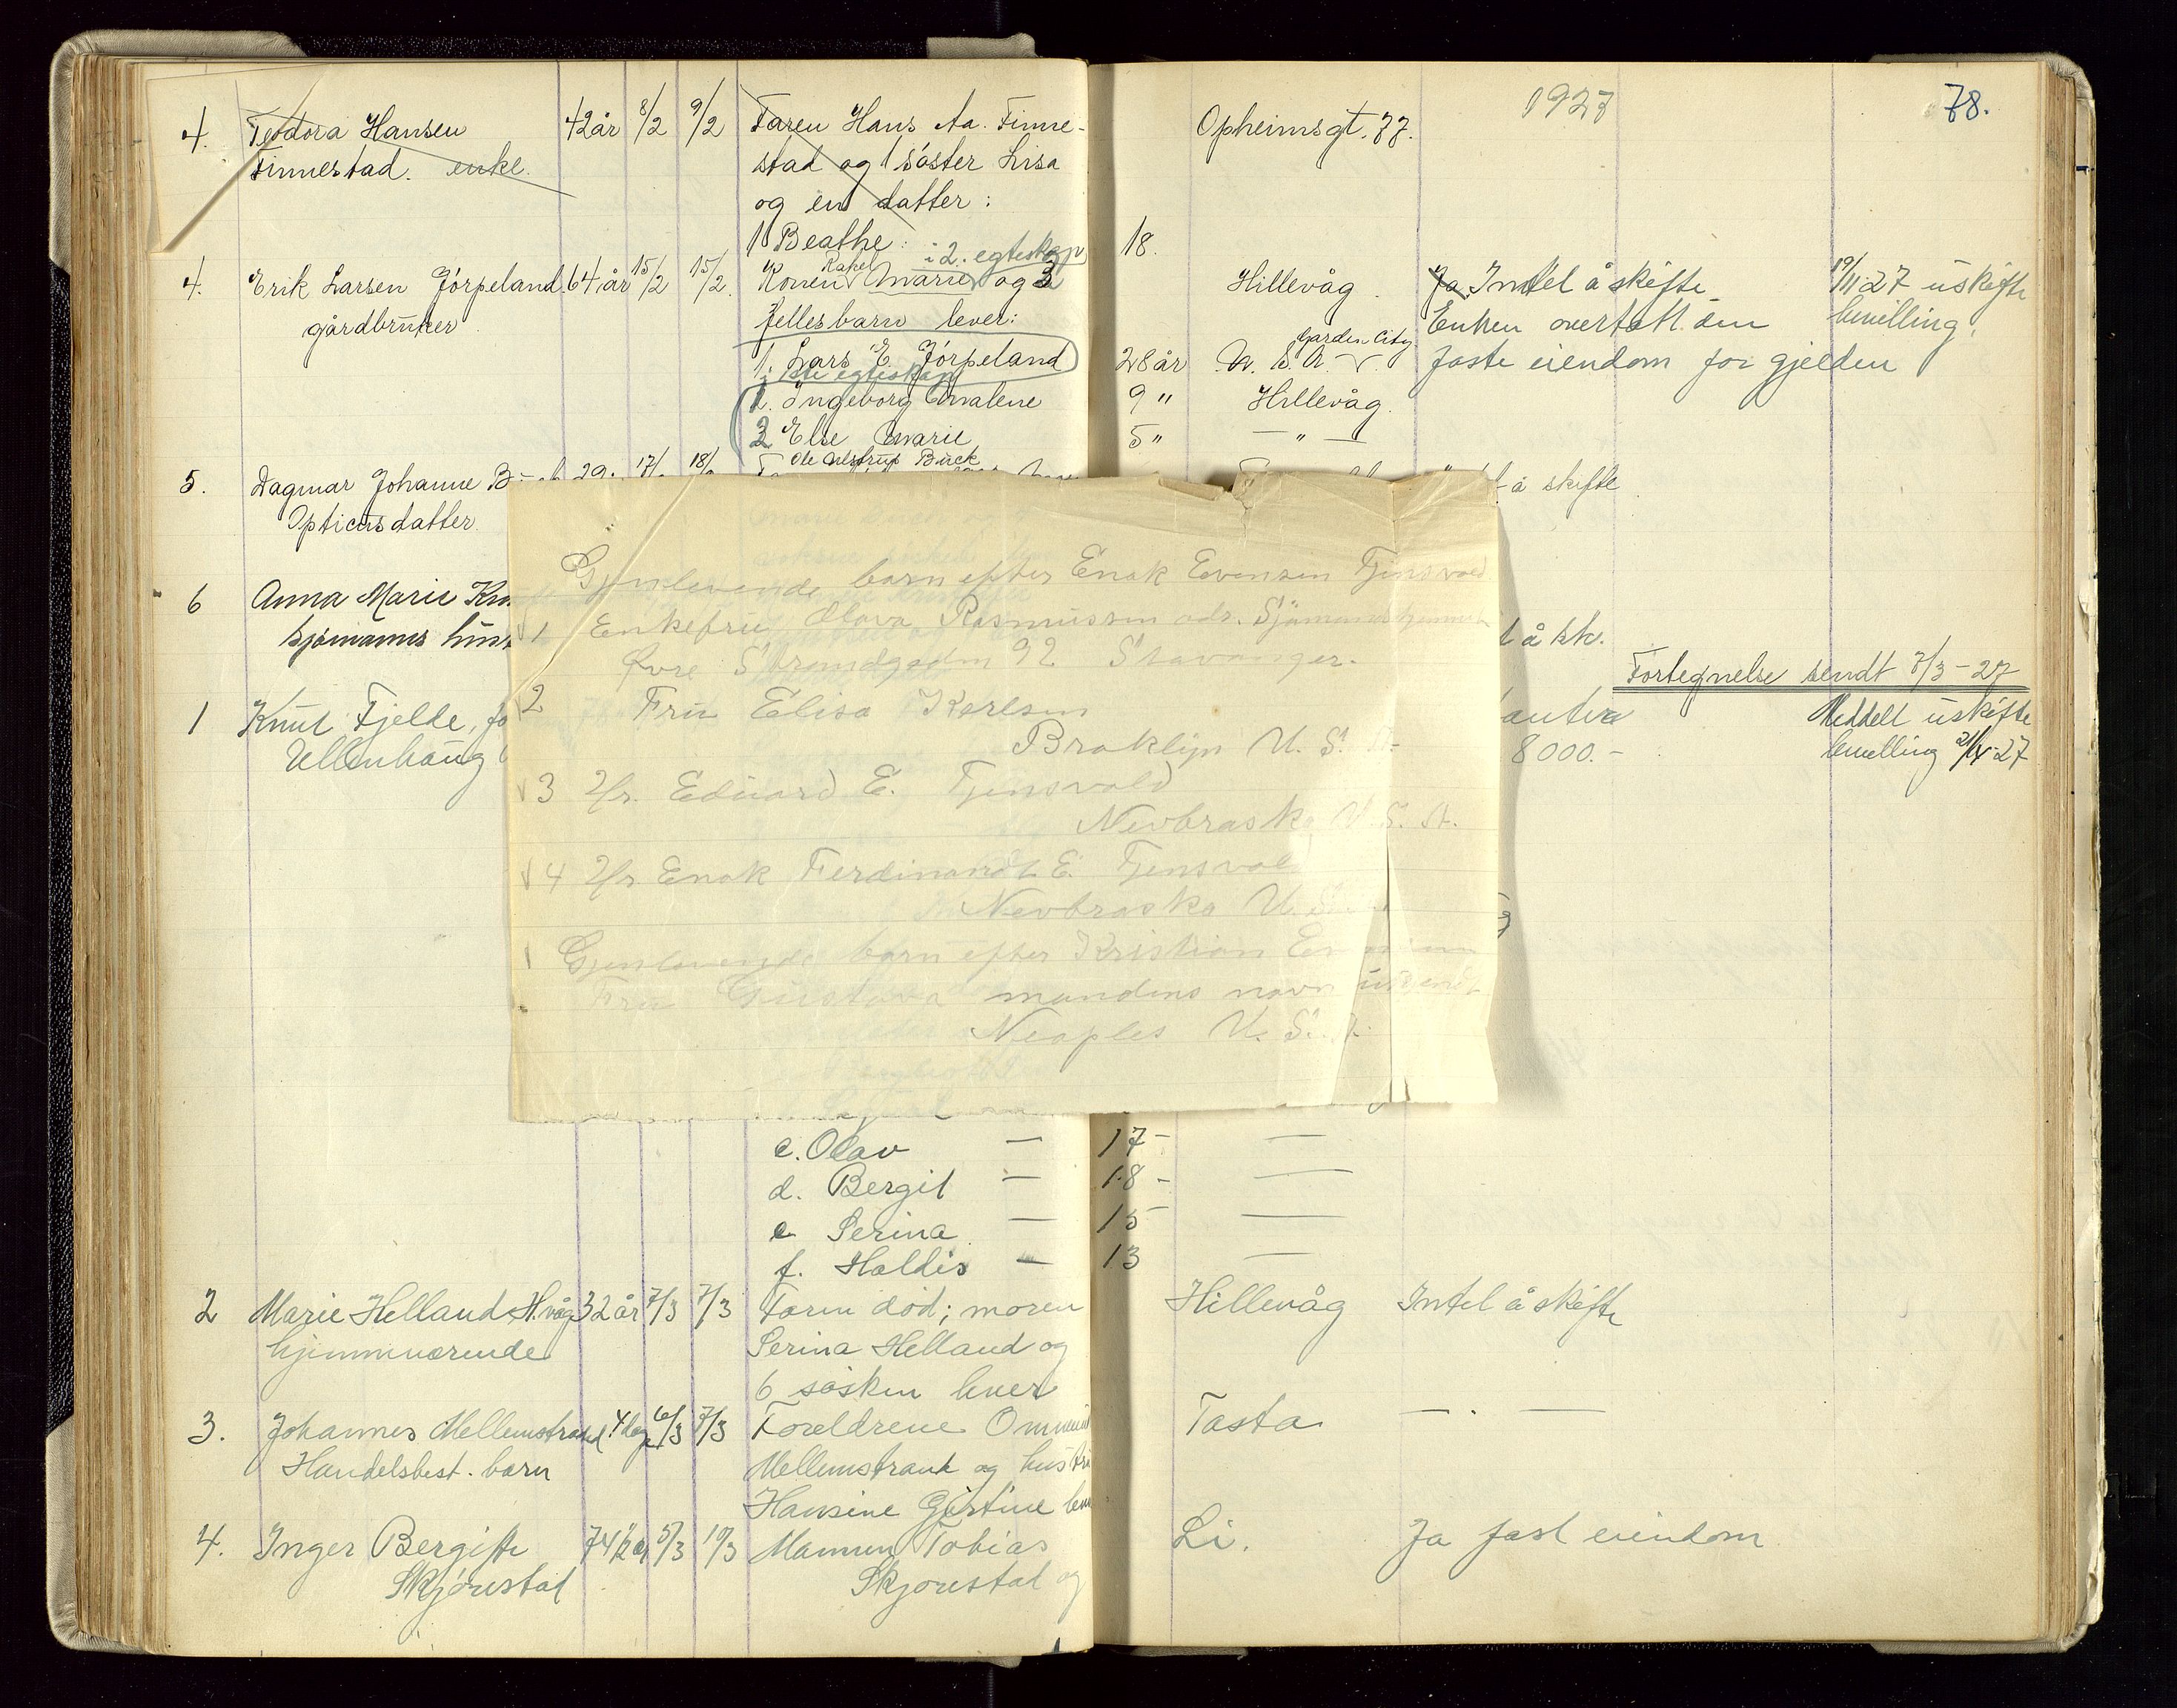 1927
78.
4. Teodora Hansen 42 år 8/2 9/2 Faren Hans Aa. Finne- Opheimsgt. 77.
Finnestad. enke. stad og 1 søster Lisa
og en datter:
1 Beathe: 18.
i 2. egteskap
4. Erik Larsen Jórpeland. 64 år 15/2 15/2. Konen Marie og 3 Hillevåg. Ja. Intet å skifte 19/11-27 uskifte
gårdbruker fellesbarn lever: Enken overtatt den bevilling.
1. Lars E. Jórpeland 28 år U. S. A. Garden City faste eiendom for gjelden
i 1ste egteskap
1. Ingeborg Malene 9 " Hillevåg.
2 Else Marie 5 " — " —
Ole Ulstrup Buck
5. Dagmar Johanne 29 17/ 18/ å skifte
Opticusdatter.
6 Anna Marie å sk.
sjømanns
Fortegnelse sendt 7/3-27
1 Knut Fjelde, Meddelt uskifte
Ullenhaug 8000.- bevilling 21/4-27
Gjenlevende barn efter Enok Evensen Tjensvold
1 Enkefru Olava Rasmussen adr. Sjömandshjemmet
Øvre Strandgaden 92 Stavanger.
2 Fru Elisa Karlsen
Broklyn U. S. A-
3 Hr. Eduard E. Tjensvold
Nevbraska U. S. A.
4 Hr Enok Ferdinandt E. Tjensvold
Nevbraska U. S.
1 Gjenlevende barn efter Kristian
Fru Gustava mandens navn ubekendt
Neaples U. S. A.
c. Olav — 17 — —
d. Bergit — 18 - —
e Serina — 15 —
f. Haldis — 13 —
2 Marie Helland H.våg 32 år 7/3 7/3 Faren död; moren Hillevåg Intet å skifte
hjemmeværende Serina Helland og
6 søsken lever
3. Johannes Mellemstrand 4 dag 6/3 7/3 Foreldrene Ommund Tasta — . —
Handelsbest. barn Mellemstrand og hustru
Hansine Gjertine lever
4. Inger Bergitte 74 1/2 år 5/3 10/3 Mannen Tobias Li. Ja fast eiendom
Skjørestad Skjørestad og